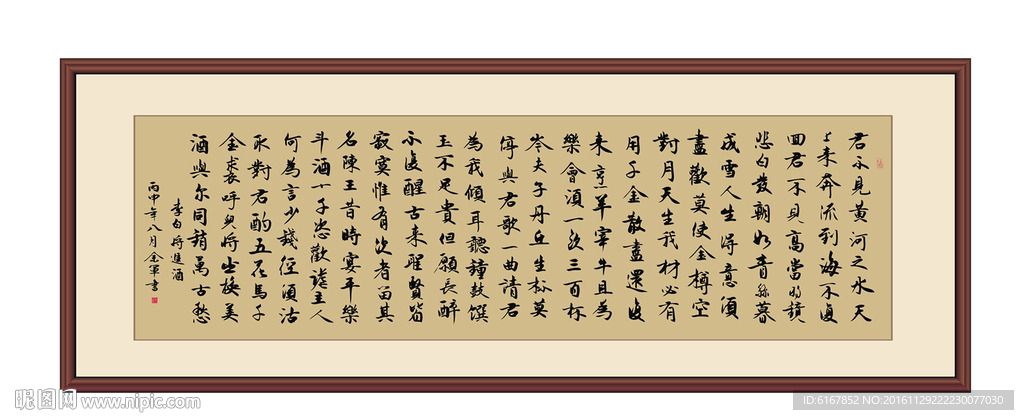 君不見黄河之水天
上来奔流到海不復
回君不見高當明鏡
悲白髮朝如青絲暮
成雪人生得意須
盡歡莫使金樽空
對月天生我材必有
用千金散盡還復
来烹羊宰牛且為
樂會須一飲三百杯
岑夫子丹丘生杯莫
停與君歌一曲請君
為我傾耳聽鐘鼓饌
玉不足貴但願長醉
不復醒古来聖賢皆
寂寞惟有飲者留其
名陳王昔時宴平樂
斗酒十千恣歡謔主人
何為言少錢徑須沽
取對君酌五花馬千
金裘呼兒將出換美
酒與尔同銷萬古愁
李白將進酒
丙申年八月金軍書
昵图网 www.nipic.com
ID:6167852 NO:20161129222230077030